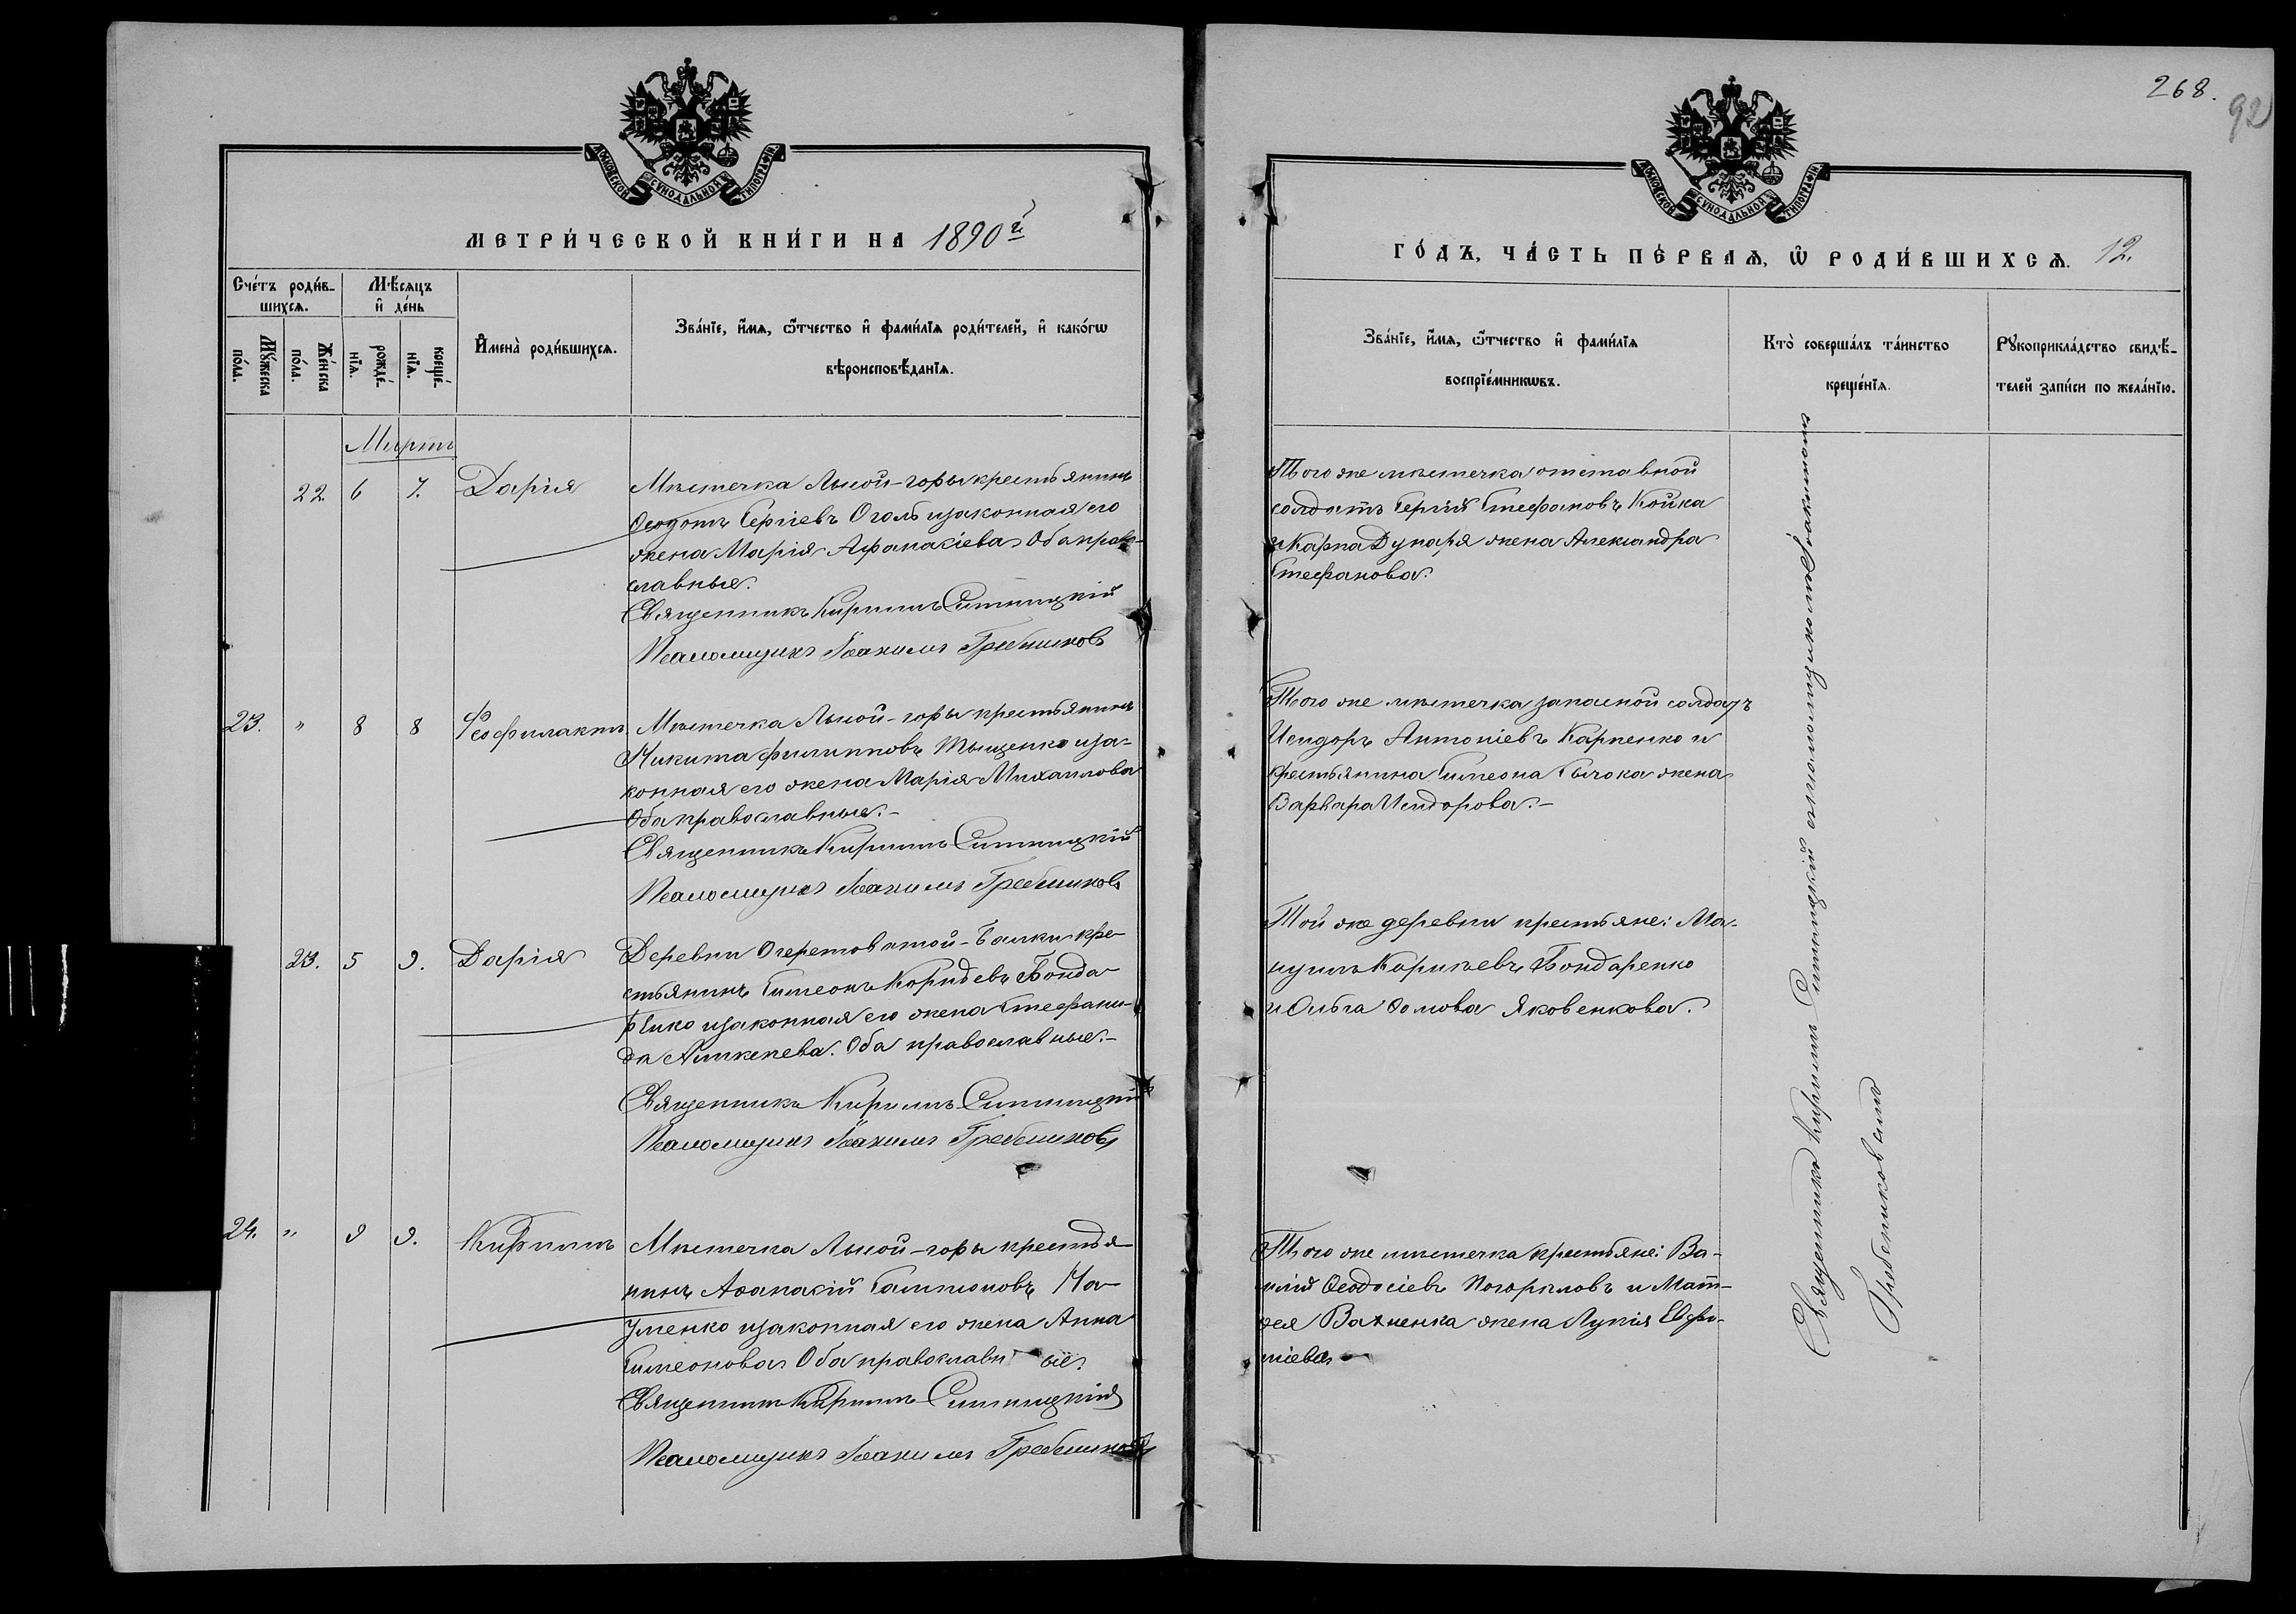 МОСКОВСКОЙ СѴНОДАЛЬНОЙ ТИПОГРАФІИ
МЕТРИ́ЧЕСКОЙ КНИ́ГИ НА 1890й
Сче́тъ роди́в-
шихсѧ.
Мѣ́сѧцъ
и҆ де́нь
Мꙋ́жеска
по́ла.
Же́нска
по́ла.
рожде́-
нїѧ.
креще́-
нїѧ.
И҆мена̀ роди́вшихсѧ.
Зва́нїе, и҆́мѧ, ѻ҆́тчество и҆ фами́лїѧ роди́телей, и҆ како́гѡ
вѣроисповѣ́данїѧ.
Мартъ
22. 6 7. Дарія
Мѣстечка Лысой-горы крестьянинъ
Ѳеодотъ Сергіевъ Оголь и законная его
жена Марія Афанасіева Оба право-
славные.
Священникъ Кириллъ Ситницкій
Псаломщикъ Іоакимъ Гребенников
23. " 8 8 Феофилактъ
Мѣстечка Лысой-горы крестьянинъ
Никита Филипповъ Тыщенко и за-
конная его жена Марія Михаилова
Оба православные.-
Священникъ Кириллъ Ситницкій
Псаломщикъ Іоакимъ Гребенниковъ
23. 5 9. Дарія
Деревни Очеретоватой-Балки кре-
стьянинъ Симеонъ Корнѣевъ Бонда-
ренко и законная его жена Стефани-
да Алексѣева. Оба православные.-
Священникъ Кириллъ Ситницкій
Псаломщикъ Іоакимъ Гребенниковъ
24. " 9 9. Кириллъ
Мѣстечка Лысой-горы крестья-
нинъ Аѳанасій Самсоновъ На-
уменко и законная его жена Анна
Симеонова Оба православные.
Священникъ Кириллъ Ситницкій
Псаломщикъ Іоакимъ Гребенниковъ
268.
92
МОСКОВСКОЙ СѴНОДАЛЬНОЙ ТИПОГРАФІИ
ГО́ДЪ, ЧА́СТЬ ПЕ́РВАѦ, Ѡ҆ РОДИ́ВШИХСѦ. 12.
Зва́нїе, и҆́мѧ, ѻ҆́тчество и҆ фами́лїѧ
воспрїе́мникѡвъ.
Кто̀ соверша́лъ та́инство
креще́нїѧ.
Рꙋкоприкла́дство свидѣ́-
телей за́писи по жела́нїю.
Того же мѣстечка отставной
солдатъ Сергій Стефановъ Койка
и Карпа Дунаря жена Александра
Стефанова.
Того же мѣстечка запасной солдатъ
Исидоръ Антоніевъ Карпенко и
крестьянина Симеона Сычока жена
Варвара Исидорова.-
Той же деревни крестьяне: Ма-
нуилъ Корнѣевъ Бондаренко
и Ольга Ѳомова Яковенкова.
Того же мѣстечка крестьяне: Ва-
силій Ѳеодосіевъ Погорѣловъ и Мат-
ѳея Вахненка жена Лукія Евфи-
міева
Священникъ Кириллъ Ситницкій съ псаломщикомъ Іоакимомъ
Гребенниковымъ